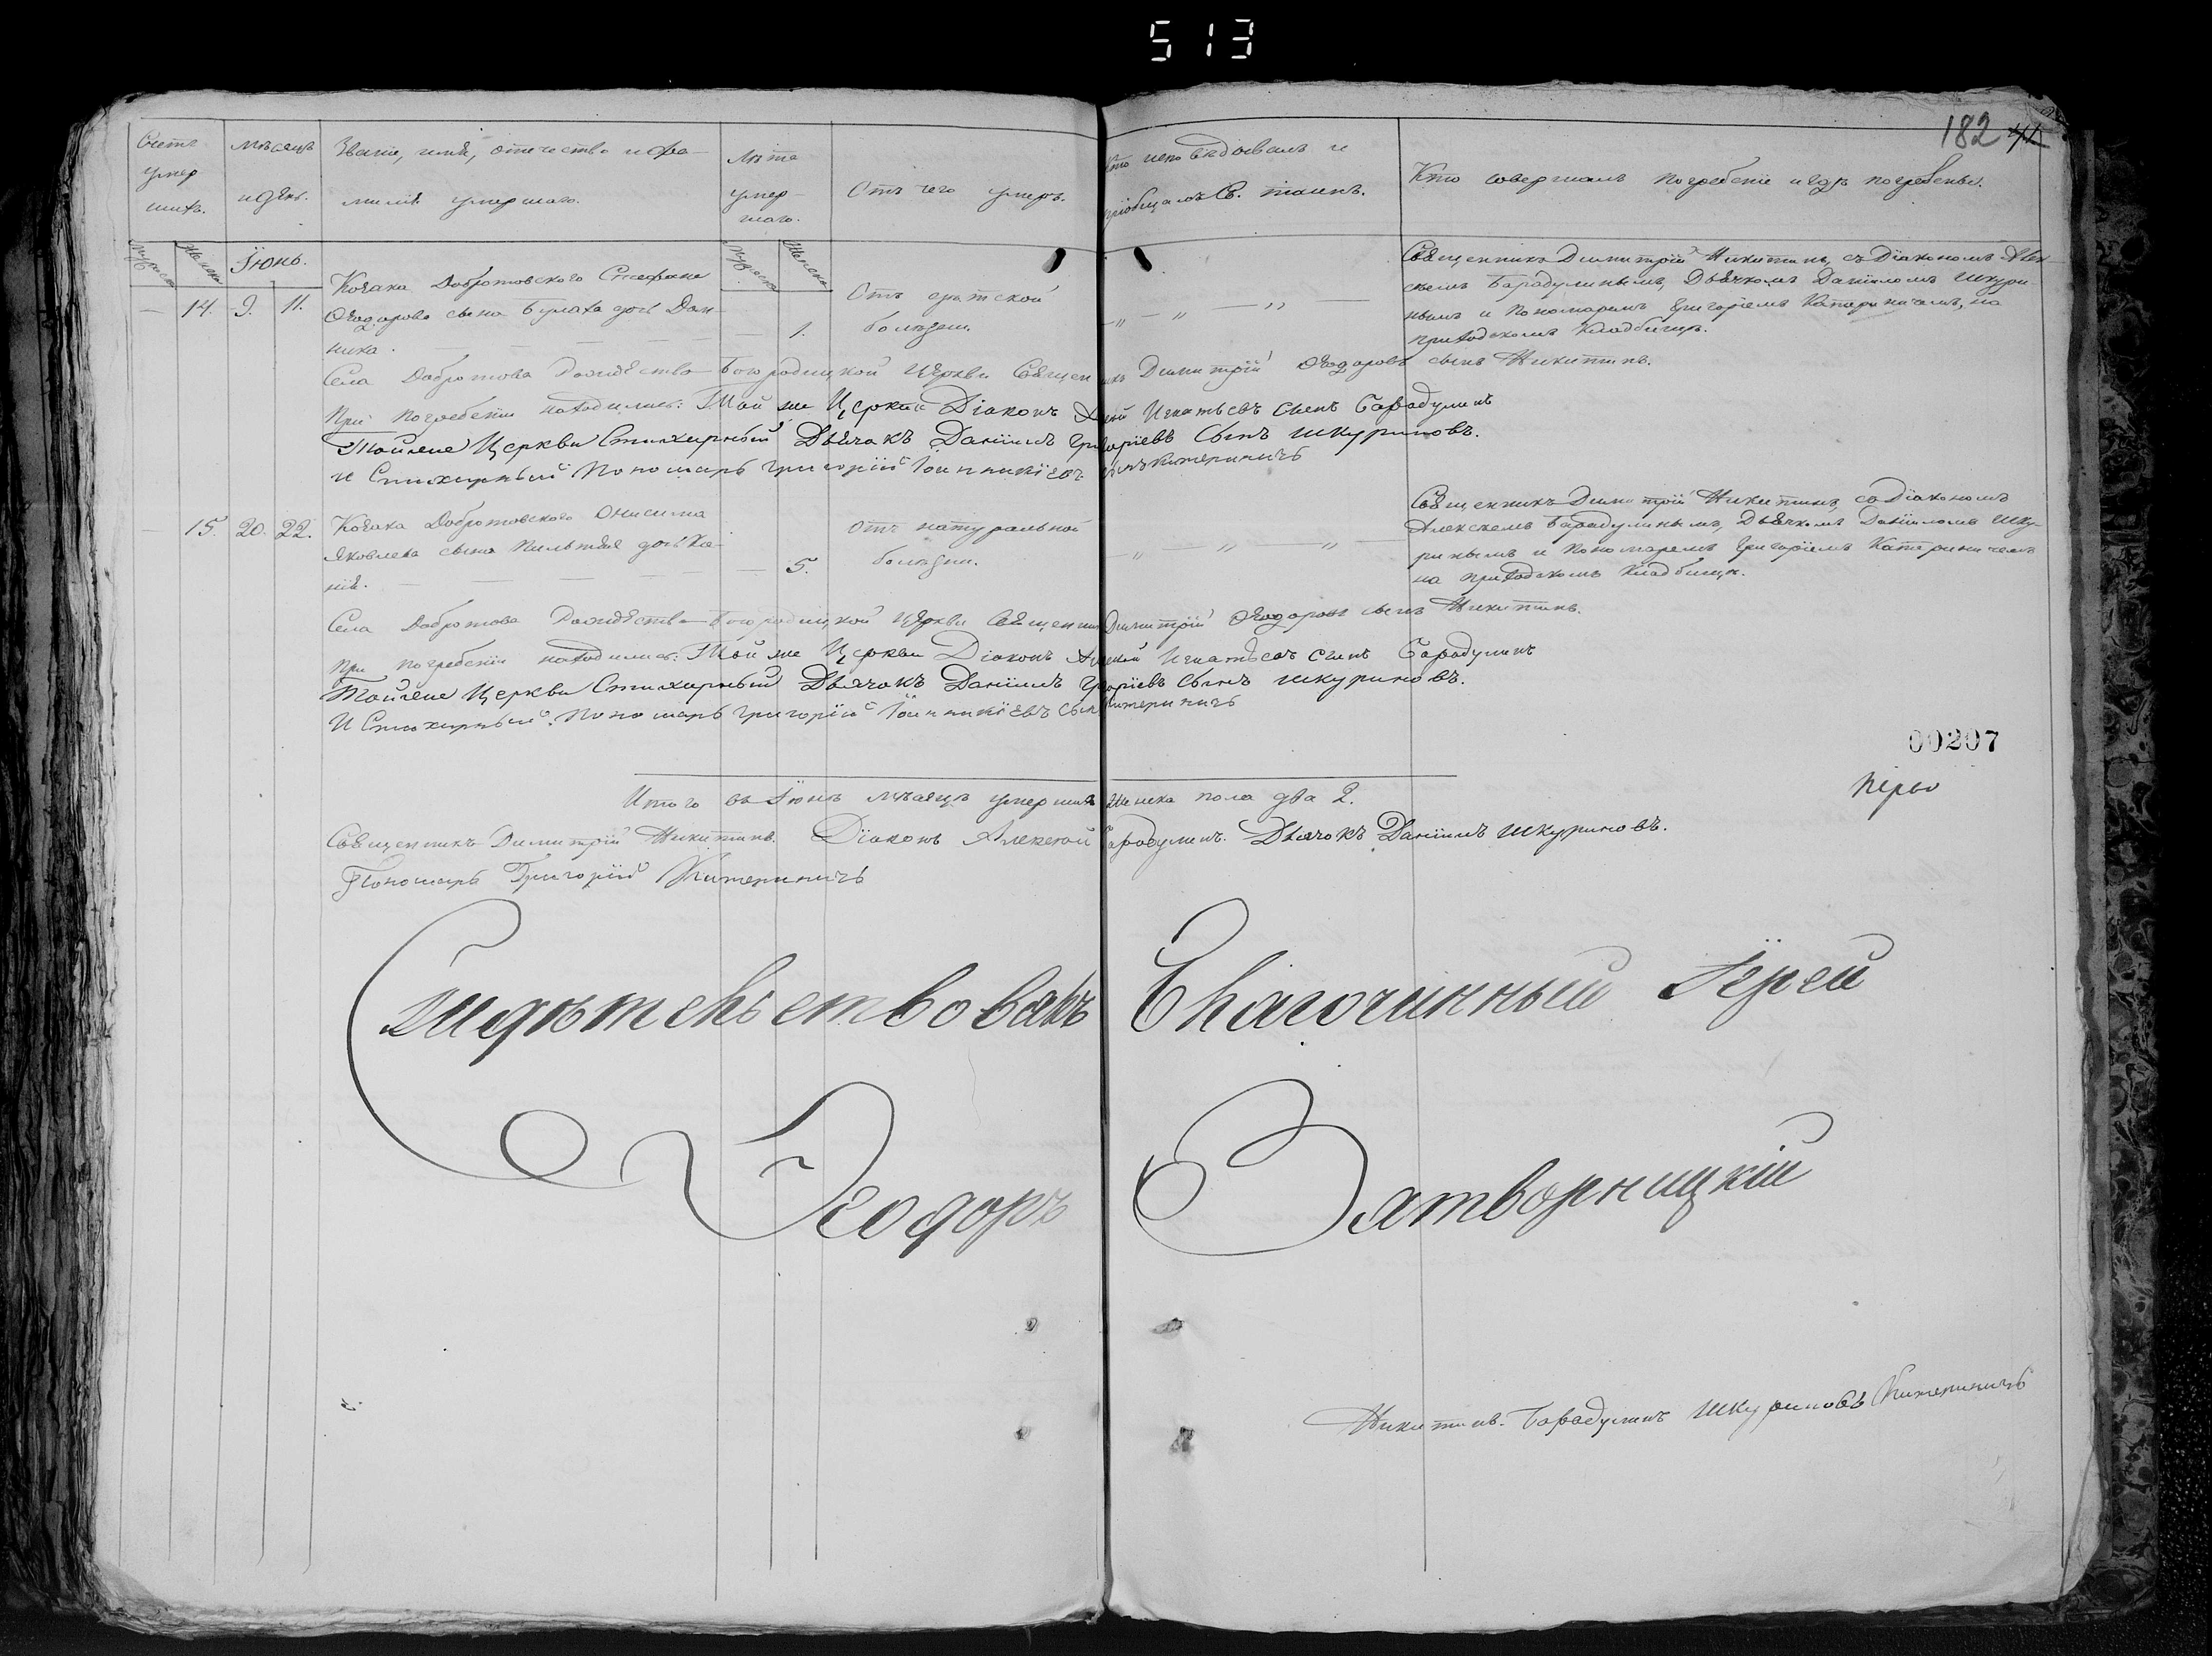 513
182 41
Счетъ умершихъ.
мѣсяцъ и день.
Званіе, имя, отечество и фамилія умершаго.
Лѣта умершаго.
Отъ чего умеръ.
Кто исповѣдывалъ и пріобщалъ Св. таинъ.
Кто совершалъ погребеніе и гдѣ погребены.
Мужеска Женска Іюнь. Мужеска Женска
— 14. 9. 11.
Козака Добротовского Стефана
Ѳеодорова сына Булаха дочь Дом-
ника. — — — — 1.
Отъ оратской
болѣзни.
— „ — „ — „ —
Священникъ Димитрій Никитинъ, съ Діакономъ Алек-
сѣемъ Барадулинымъ, Дьячкомъ Даніиломъ Шкури-
нымъ и Пономаремъ Григоріемъ Катериничемъ, на
приходскомъ кладбищѣ.
Села Добротова Рождество Богородицкой Церкви Священникъ Димитрій Ѳеодоровъ сынъ Никитинъ.
При погребеніи находились: Той же Церкви Діаконъ Алексѣй Игнатьевъ сынъ Барадулинъ
Той же Церкви Стихарный Дьячокъ Даніилъ Григоріевъ Сынъ Шкуриновъ.
и Стихарный Пономарь Григорій Іоанникіевъ сынъ Катериничъ
— 15. 20. 22.
Козака Добротовского Онисима
Яковлева сына дочь Ка-
нія. — — — — — 5.
Отъ натуральной
болѣзни.
— „ — „ — „ —
Священникъ Димитрій Никитинъ, со Діакономъ
Алексѣемъ Барадулинымъ, Дьячкомъ Даніиломъ Шку-
ринымъ и Пономаремъ Григоріемъ Катериничемъ
на приходскомъ кладбищѣ.
Села Добротова Рождество Богородицкой Церкви Священникъ Димитрій Ѳеодоровъ сынъ Никитинъ.
При погребеніи находились: Той же Церкви Діаконъ Алексѣй Игнатьевъ сынъ Барадулинъ
Той же Церкви Стихарный Дьячокъ Даніилъ Григоріевъ Сынъ Шкуриновъ.
И Стихарный Пономарь Григорій Іоанникіевъ Сынъ Катериничъ
00207
Итого въ Іюнѣ мѣсяцѣ умерших женска пола два 2.
Священникъ Димитрій Никитинъ. Діаконъ Алексѣй Барадулинъ. Дьячокъ Даніилъ Шкуриновъ.
Пономарь Григорій Катериничъ
Свидѣтельствовалъ Благочинный Іерей
Ѳеодоръ Затворницкій
Никитинъ. Барадулинъ Шкуриновъ Катериничъ